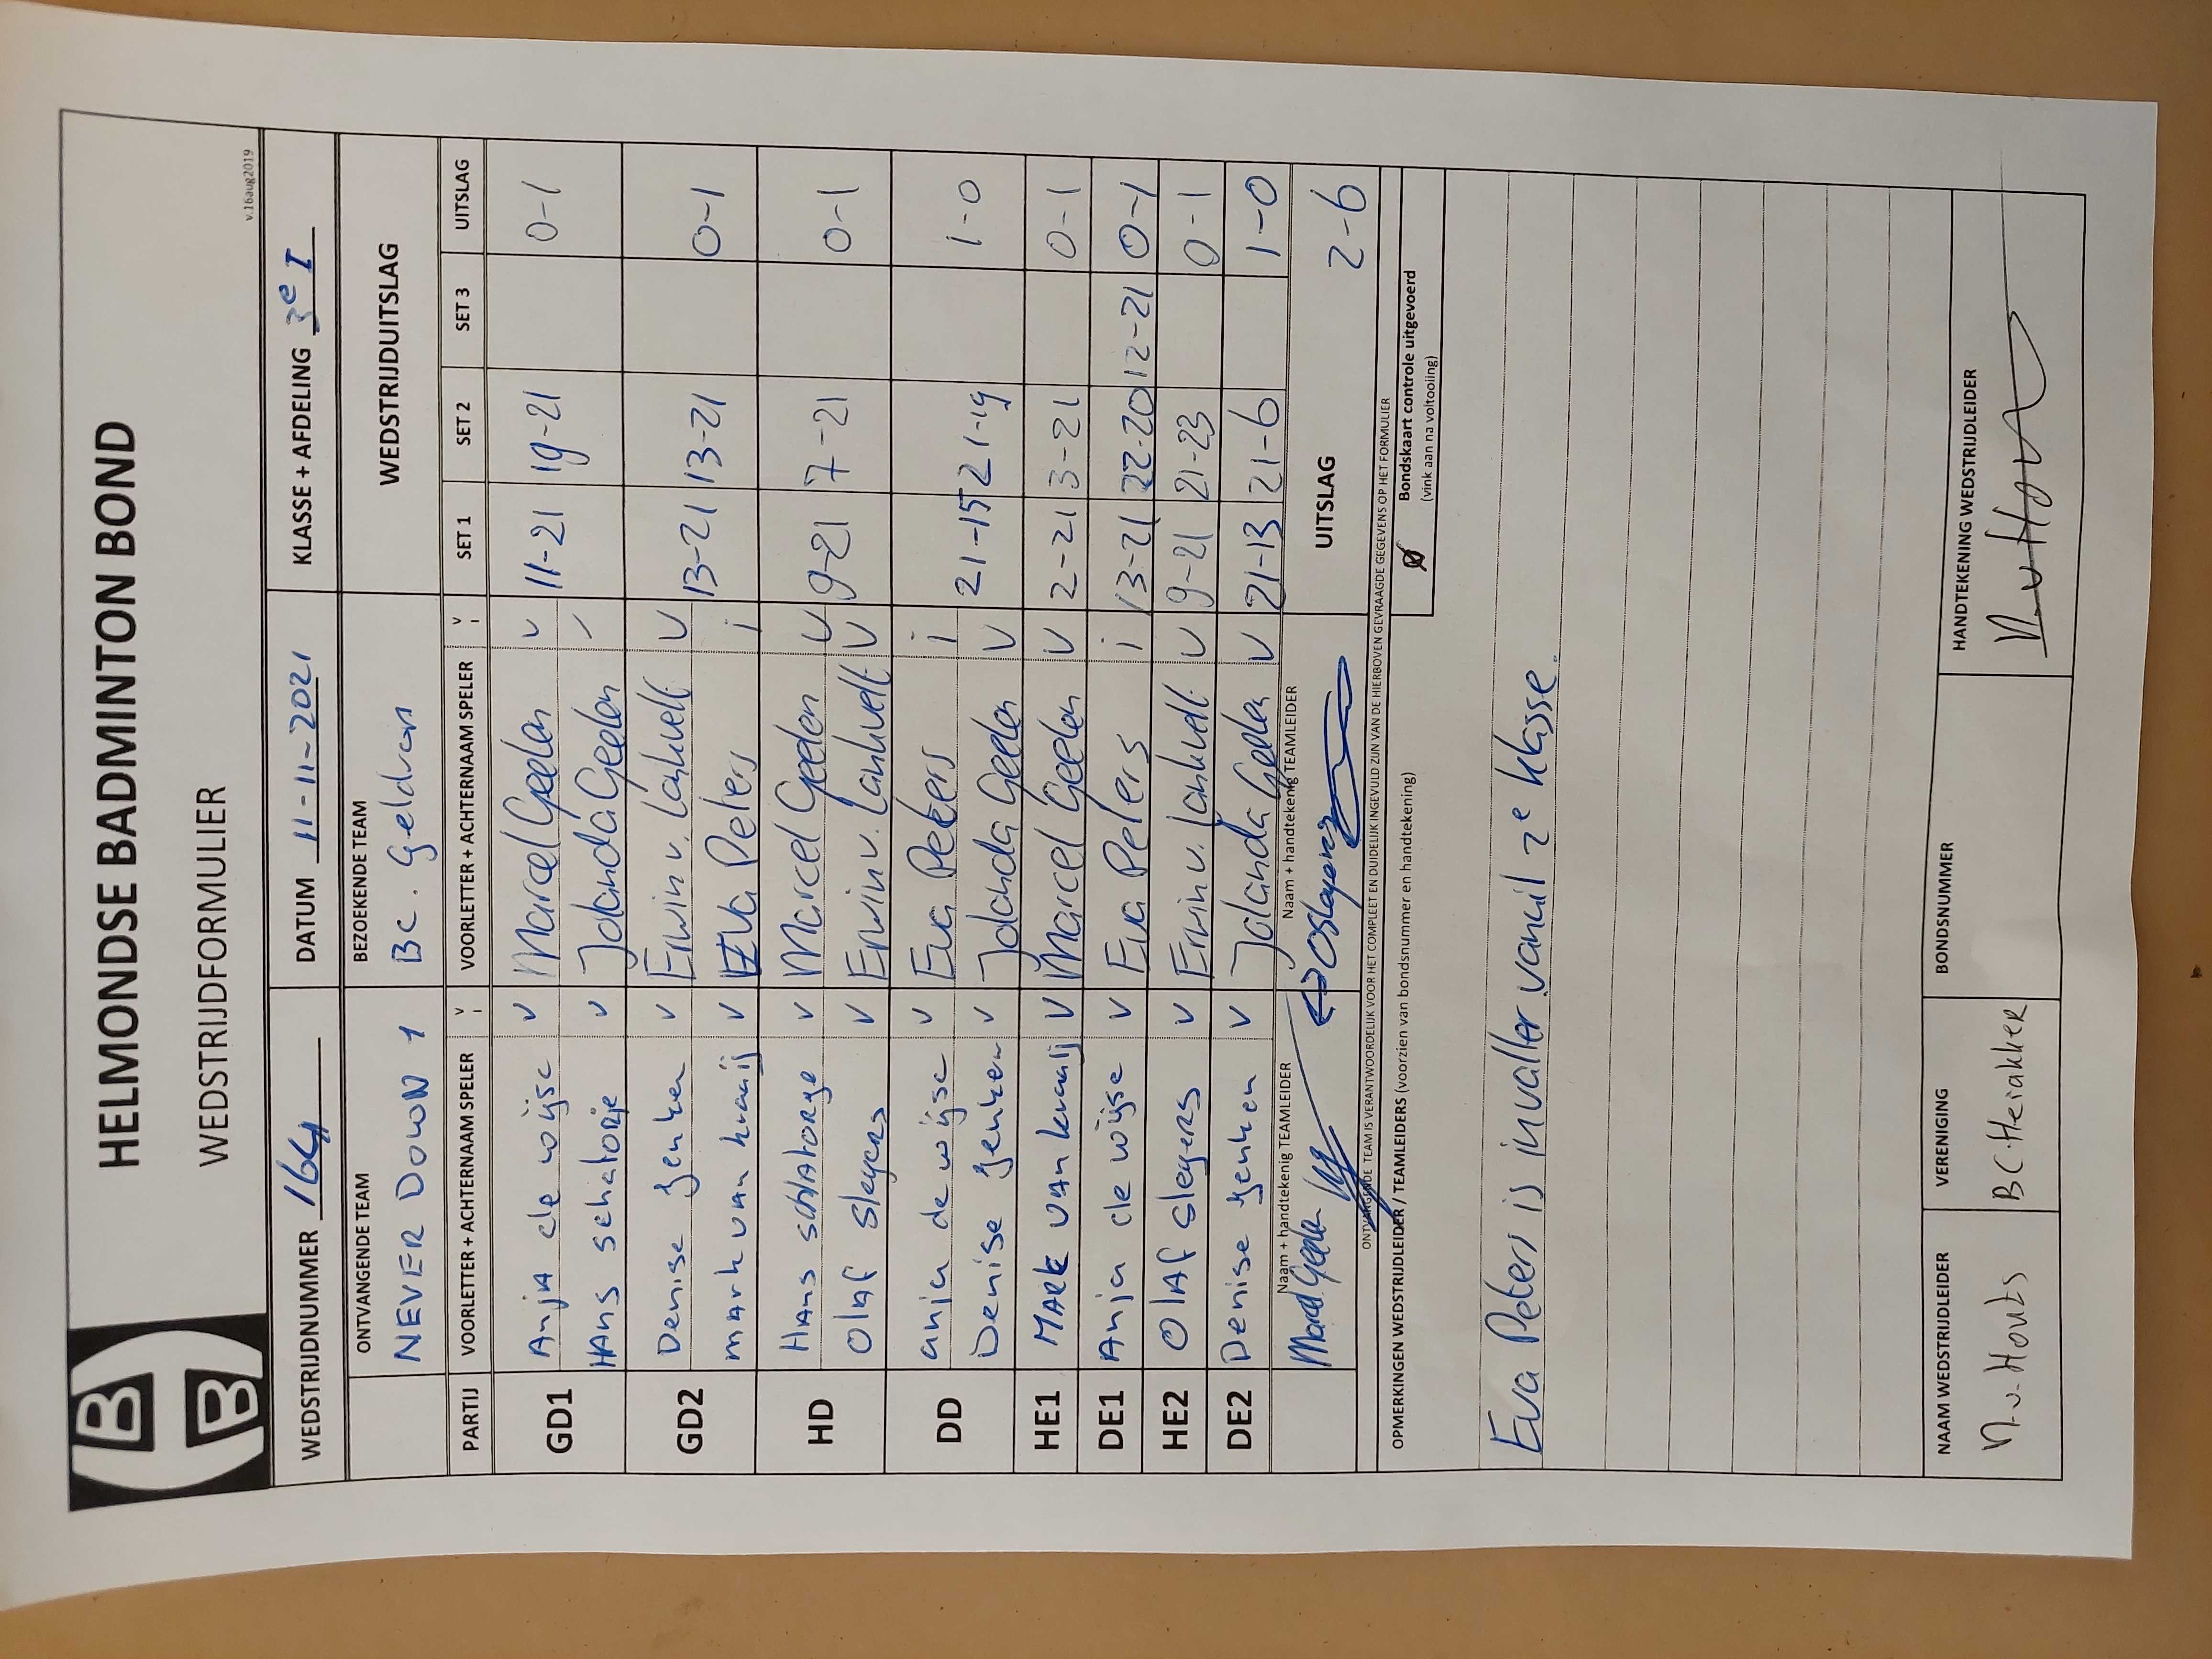 B
B
HELMONDSE BADMINTON BOND
WEDSTRIJDFORMULIER
v.16aug2019
WEDSTRIJDNUMMER 164 DATUM 11-11-2021 KLASSE + AFDELING 3e I
ONTVANGENDE TEAM BEZOEKENDE TEAM WEDSTRIJDUITSLAG
NEVER DOWN 1 BC. Geldrop
PARTIJ VOORLETTER + ACHTERNAAM SPELER V I VOORLETTER + ACHTERNAAM SPELER V I SET 1 SET 2 SET 3 UITSLAG
GD1 Anja de wijse v Marcel Geelen v 11-21 19-21 0-1
HAns schatorje v Jolanda Geelen v
GD2 Denise Jenken v Erwin v. Lankvelt V 13-21 13-21 0-1
mark van kraaij v Eva Peters i
HD Hans schatorje v Marcel Geelen V 9-21 7-21 0-1
Olaf Slegers v Erwin v. Lankvelt V
DD anja de wijse v Eva Peters i 21-15 21-19 1-0
Denise Jenken v Jolanda Geelen V
HE1 MARk vAn kraaij V Marcel Geelen V 2-21 3-21 0-1
DE1 Anja de wijse V Eva Peters i 13-21 22-20 12-21 0-1
HE2 OlAf slegers V Erwin v. Lankvelt V 9-21 21-23 0-1
DE2 Denise Jenken V Jolanda Geelen V 21-13 21-6 1-0
Naam + handtekenig TEAMLEIDER Naam + handtekenig TEAMLEIDER UITSLAG 2-6
Marcel Geelen
ONTVANGENDE TEAM IS VERANTWOORDELIJK VOOR HET COMPLEET EN DUIDELIJK INGEVULD ZIJN VAN DE HIERBOVEN GEVRAAGDE GEGEVENS OP HET FORMULIER
OPMERKINGEN WEDSTRIJDLEIDER / TEAMLEIDERS (voorzien van bondsnummer en handtekening)
Bondskaart controle uitgevoerd
(vink aan na voltooiing)
Eva Peters is invaller vanuit 2e klasse.
NAAM WEDSTRIJDLEIDER VERENIGING BONDSNUMMER HANDTEKENING WEDSTRIJDLEIDER
N.v. Houts BC.Heiakker